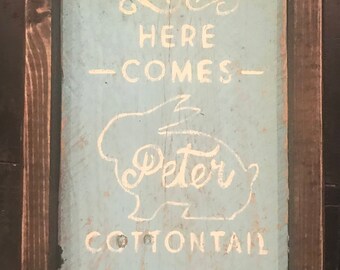 HERE
COMES
Peter
COTTONTAIL